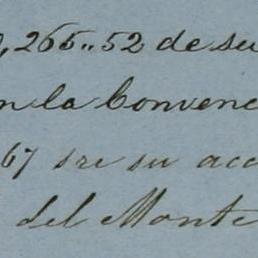 ,265..52 de su
n la Convenc
67 sre su acc
del Monte